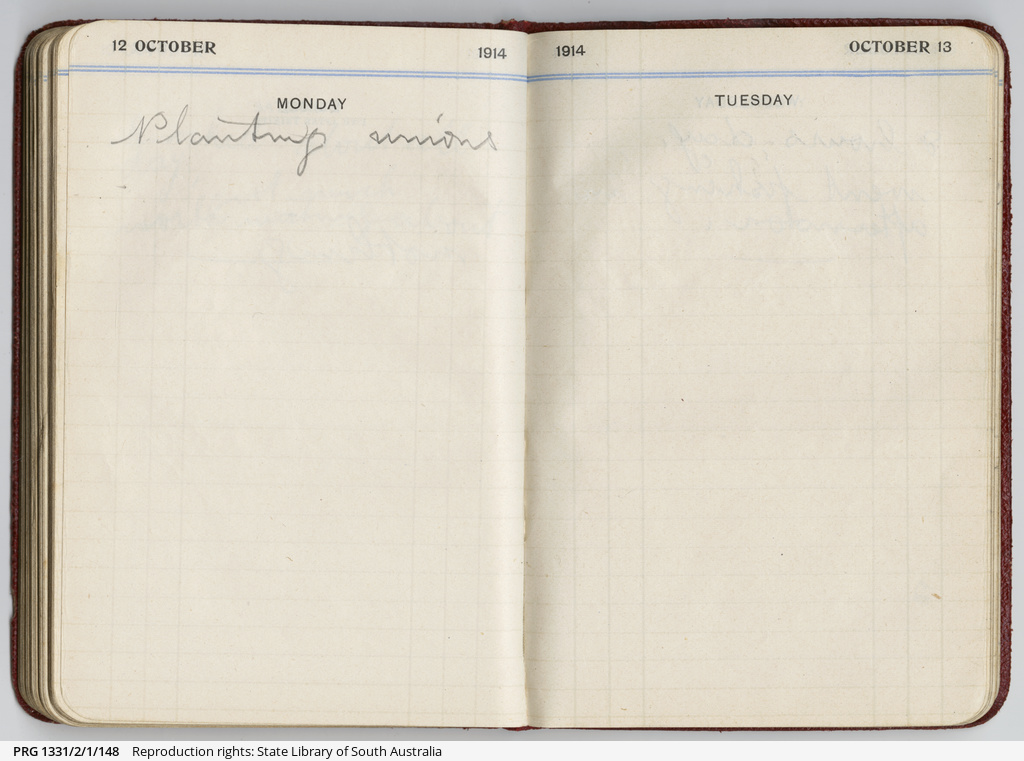 12 OCTOBER
1914
MONDAY
Planting unions
1914
OCTOBER 13
TUESDAY
PRG 1331/2/1/148 Reproduction rights: State Library of South Australia